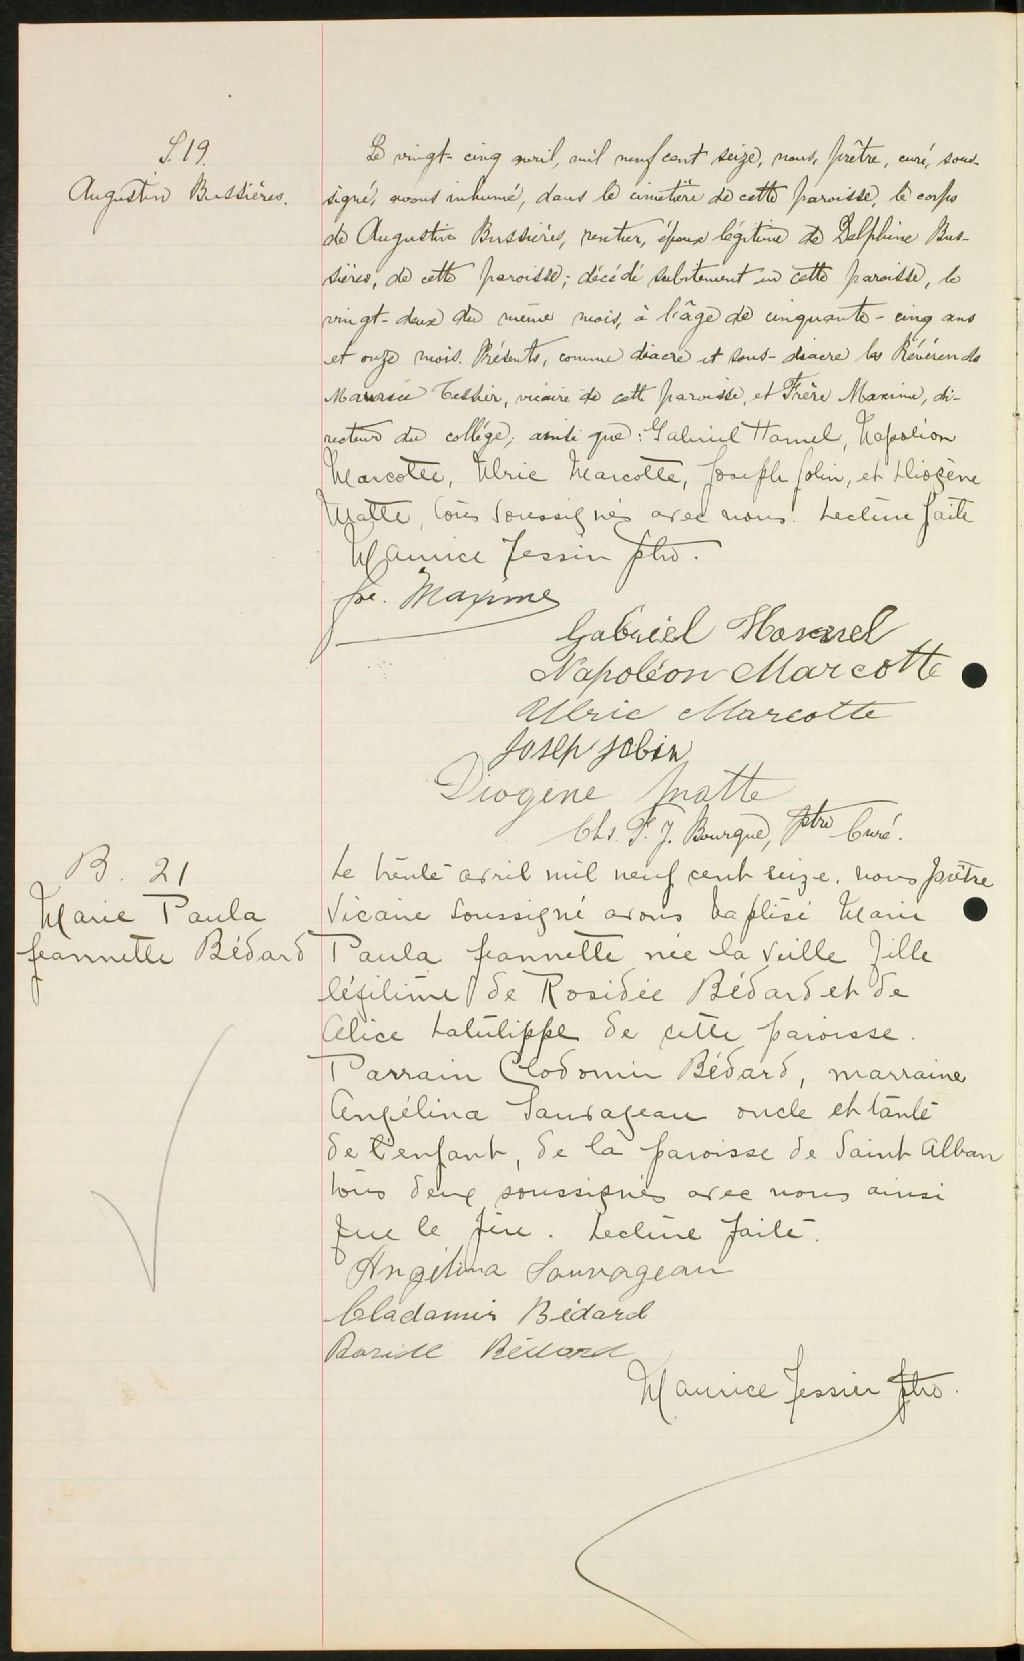 S. 19.
Augustin Bussières.
Le vingt-cinq avril, mil neuf cent seize, nous, prêtre, curé, sous-
signé, avons inhumé, dans le cimetière de cette paroisse, le corps
de Augustin Bussières, rentier, époux légitime de Delphine Bus-
sières, de cette paroisse; décédé subitement en cette paroisse, le
vingt-deux du même mois, à l'âge de cinquante-cinq ans
et onze mois. Présents, comme diacre et sous-diacre les Révérends
Maurice Tessier, vicaire de cette paroisse, et Frère Maxime, di-
recteur du collège; ainsi que: Gabriel Hamel, Napoléon
Marcotte, Ulric Marcotte, Joseph Jobin, et Diogène
Matte, tous soussignés avec nous. Lecture faite
Maurice Tessier ptre.
fre. Maxime
Gabriel Hamel
Napoléon Marcotte
Ulric Marcotte
Josep Jobin
Diogène Matte
Chs. F. J. Bourque, Ptre Curé.
B. 21
Marie Paula
Jeannette Bédard
Le trente avril mil neuf cent seize, nous prêtre
Vicaire soussigné avons baptisé Marie
Paula Jeannette née la veille fille
légitime de Rosidée Bédard et de
Alice Latulippe de cette paroisse.
Parrain Clodomir Bédard, marraine
Angélina Sauvageau oncle et tante
de l'enfant, de la paroisse de Saint Alban
tous deux soussignés avec nous ainsi
que le père. Lecture faite.
Angélina Sauvageau
Cladamir Bédard
Bédard
Maurice Tessier Ptre.